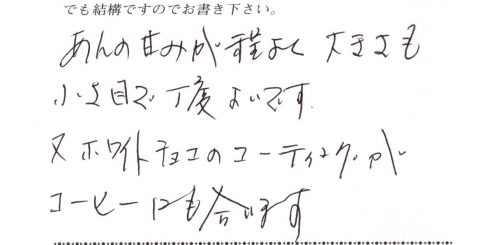 でも結構ですのでお書き下さい。
あんの甘みが程よく 大きさも
小さ目で丁度よいです.
又ホワイトチョコのコーティングが
コーヒーにも合います